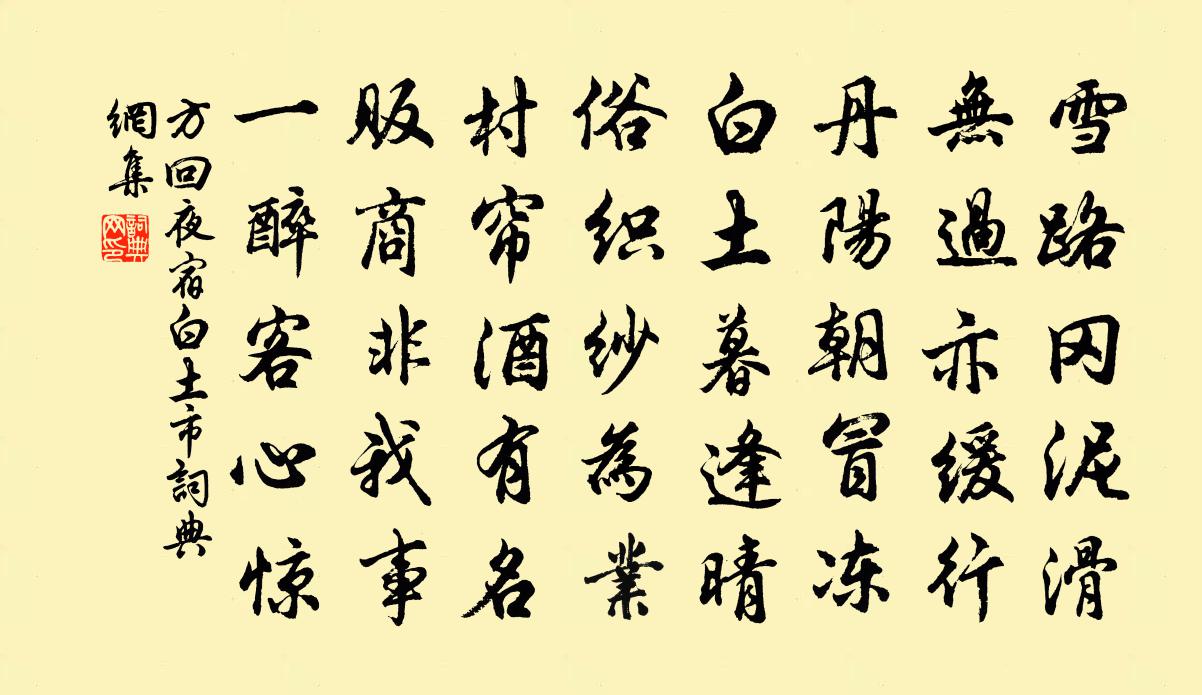 雪路冈泥滑
無過亦缓行
丹陽朝冒冻
白土暮逢晴
俗织纱為業
村帘酒有名
贩商非我事
一醉客心惊
方回夜宿白土市詞典
網集
詞典
网印